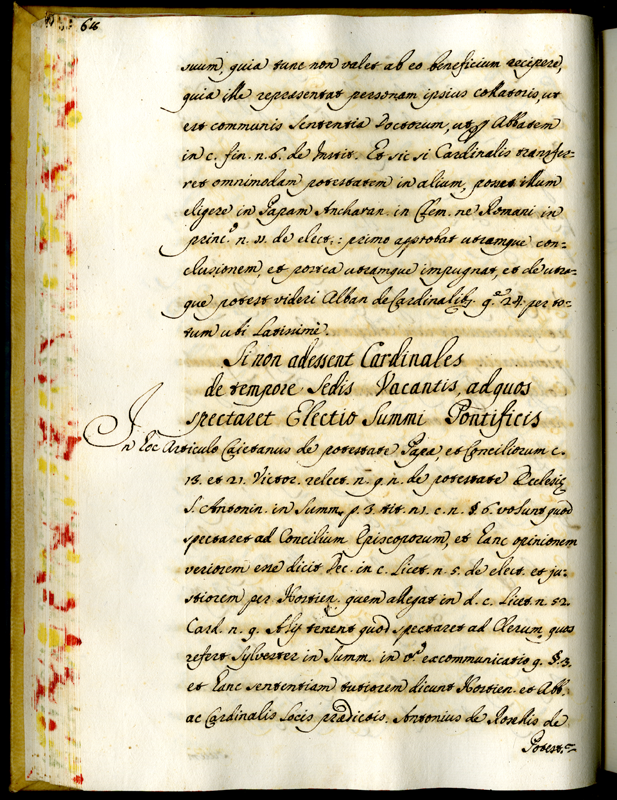 suum, quia tunc non valet ab eo beneficium recipere,
quia ille repraesentat personam ipsius collatoris, ut
est communis sententia Doctorum, Abbatem
in c. fin. n. 6. de Instit. Et sic si Cardinalis transfer-
ret omnimodam potestatem in alium, posset illum
eligere in Papam Ancharan. in Clem. ne Romani in
princ.o n. de elect.: primo approbat utramque con-
clusionem, et postea utramque impugnat, et de utra-
que potest videri Alban de Cardinalib. q.e 24. per to-
tum ubi Latissimè.
Si non adessent Cardinales
de tempore Sedis Vacantis, ad quos
spectaret Electio Summi Pontificis
In hoc Articulo Caietanus de potestate Papae, et Conciliorum c.
13. et 21. Victor. relect. n. 9. n. de potestate Ecclesiae
S. Antonin. in Summ. p. 3. tit. c. n. § 6. volunt quod
spectaret ad Concilium Episcoporum, et hanc opinionem
veriorem esse dicit Dec. in c. Licet. n. 5. de elect. et ju-
stiorem per Hostien. quem allegat in d. c. Licet. n. 52.
Card. n. 9. Alij tenent quod spectaret ad Clerum, quos
refert Sylvester in Summ. in excommunicatio 9. §. 3.
et hanc sententiam tutiorem dicunt Hostien. et Abb.
ac Cardinalis Locis praedictis. Antonius de Rosellis de
Potest.e